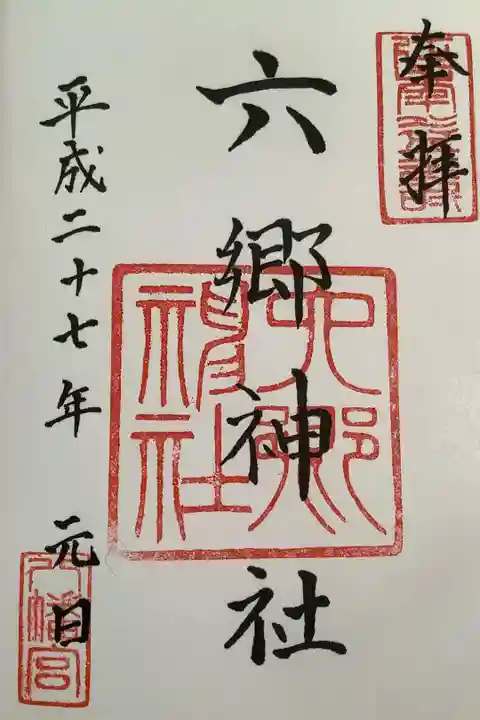 奉拝
六郷神社
平成二十七年 元日
六郷神社
八幡宮